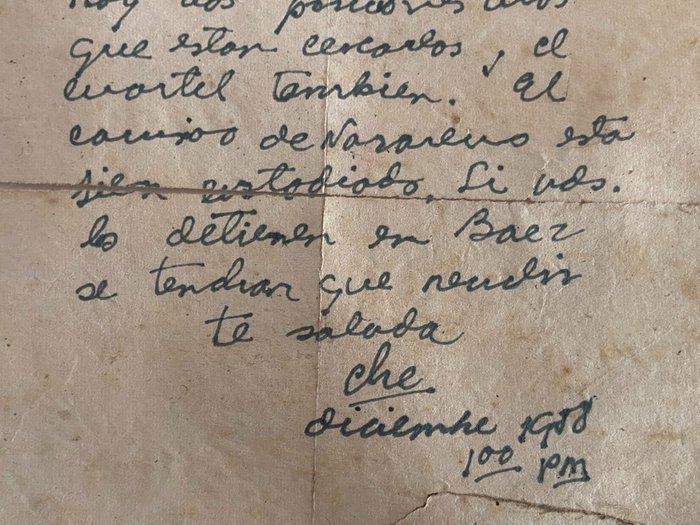 hay dos posiciones
que estan cercarlos, el
cuartel tambien. El
camino de Nazareno esta
bien custodiado, Si uds.
lo detienen en Baez
se tendran que rendir
te saluda
che.
diciembre 1958
1 00 PM